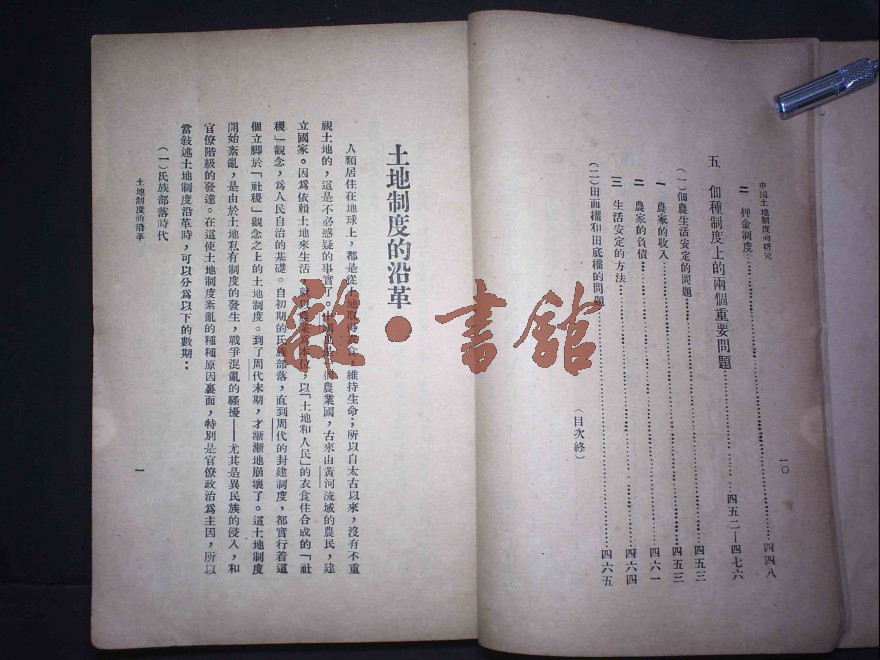 中國土地制度的研究
一〇
二 押金制度……四四八
五 佃種制度上的兩個重要問題……四五二—四七六
(一)佃農生活安定的問題……四五三
一 農家的收入……四六一
二 農家的負債……四六四
三 生活安定的方法……四六四
(二)田面權和田底權的問題……四六五
(目次終)
土地制度的沿革
人類居住在地球上，都是從土地取得衣食，維持生命；所以自太古以來，沒有不重
視土地的，這是不必惑疑的事實了。中國也是一個農業國，古來由黃河流域的農民，建
立國家。因爲依賴土地來生活，就以農業爲本位，以「土地和人民」的衣食住合成的「社
稷」觀念，爲人民自治的基礎。自初期的氏族部落，直到周代的封建制度，都實行着這
個立脚於「社稷」觀念之上的土地制度。到了周代末期，才漸漸地崩壞了。這土地制度
開始紊亂，是由於土地私有制度的發生，戰爭混亂的騷擾——尤其是異民族的侵入，和
官僚階級的發達。在這使土地制度紊亂的種種原因裏面，特別是官僚政治爲主因，所以
當敍述土地制度沿革時，可以分爲以下的數期：
(一)氏族部落時代
土地制度的沿革
一
雅·書館